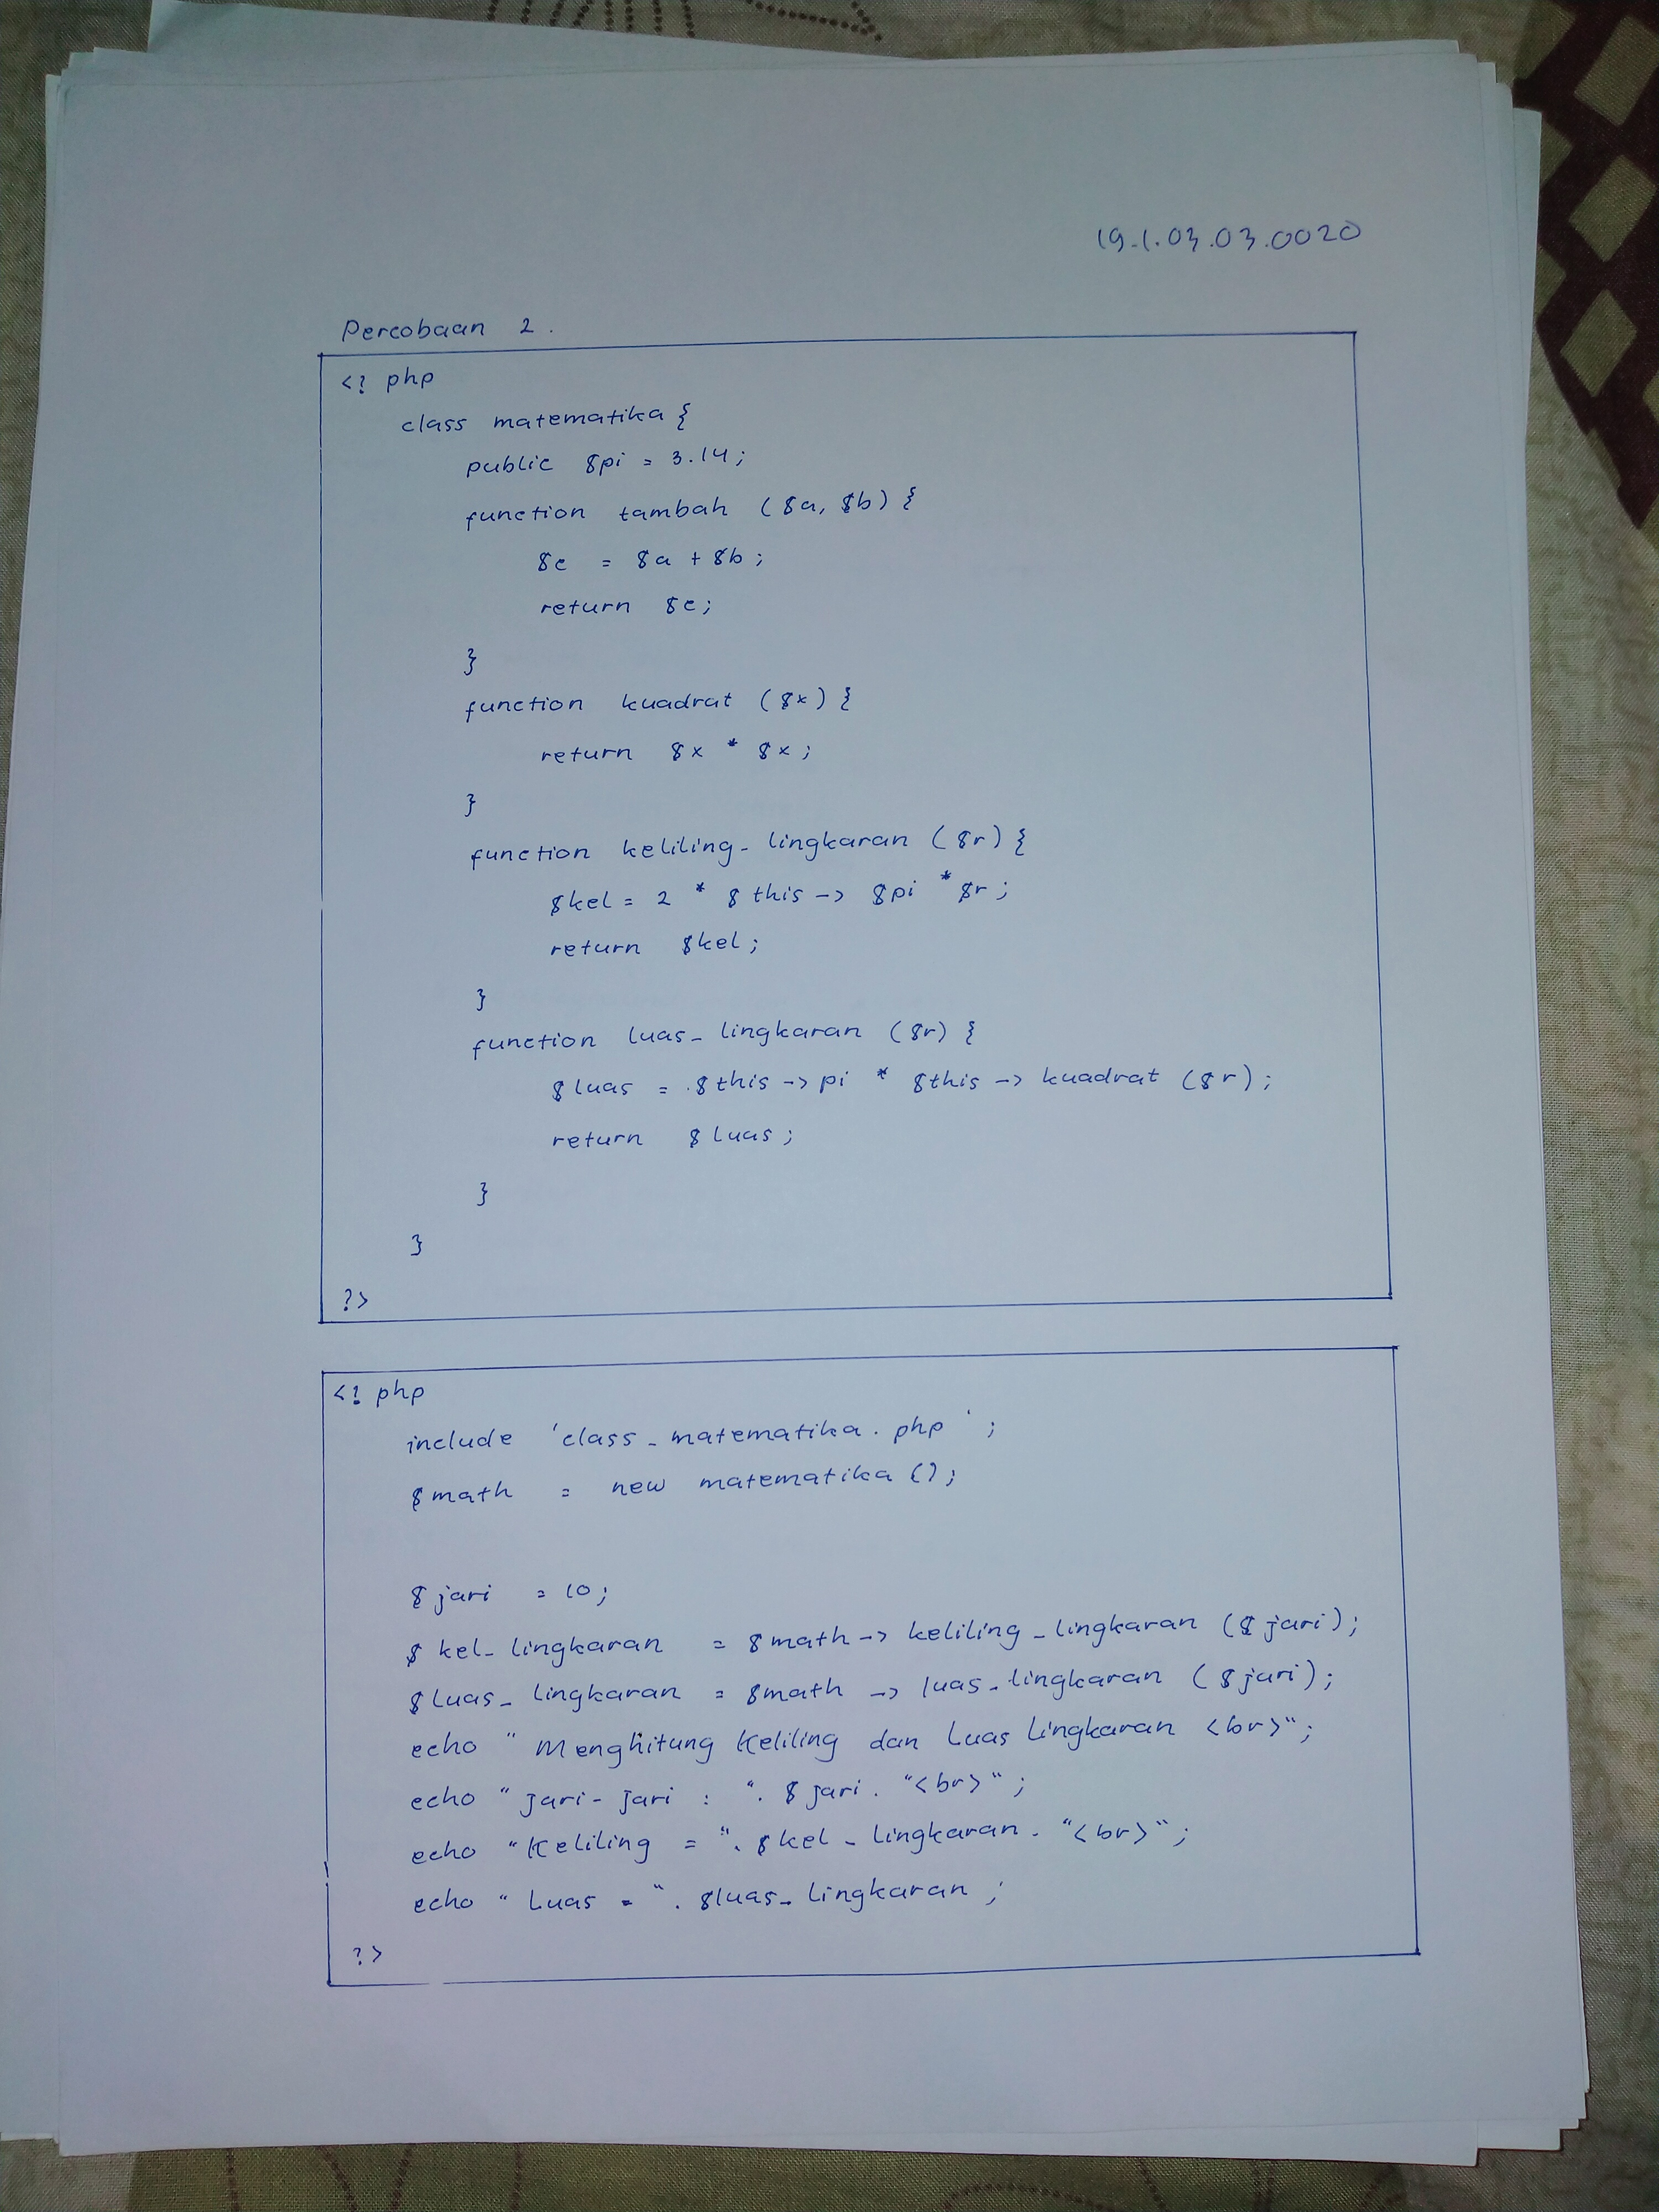 19.1.03.03.0020
Percobaan 2.
<? php
class matematika {
public $pi = 3.14;
function tambah ($a, $b) {
$c = $a + $b;
return $c;
}
function kuadrat ($x) {
return $x * $x;
}
function keliling_lingkaran ($r) {
$kel = 2 * $this -> $pi * $r;
return $kel;
}
function luas_lingkaran ($r) {
$luas = $this -> pi * $this -> kuadrat ($r);
return $luas;
}
}
?>
<? php
include 'class_matematika.php';
$math = new matematika ();
$jari = 10;
$kel_lingkaran = $math -> keliling_lingkaran ($jari);
$luas_lingkaran = $math -> luas_lingkaran ($jari);
echo "Menghitung Keliling dan Luas Lingkaran <br>";
echo "Jari-Jari : ". $jari. "<br>";
echo "Keliling = ". $kel_lingkaran. "<br>";
echo "Luas = ". $luas_lingkaran;
?>